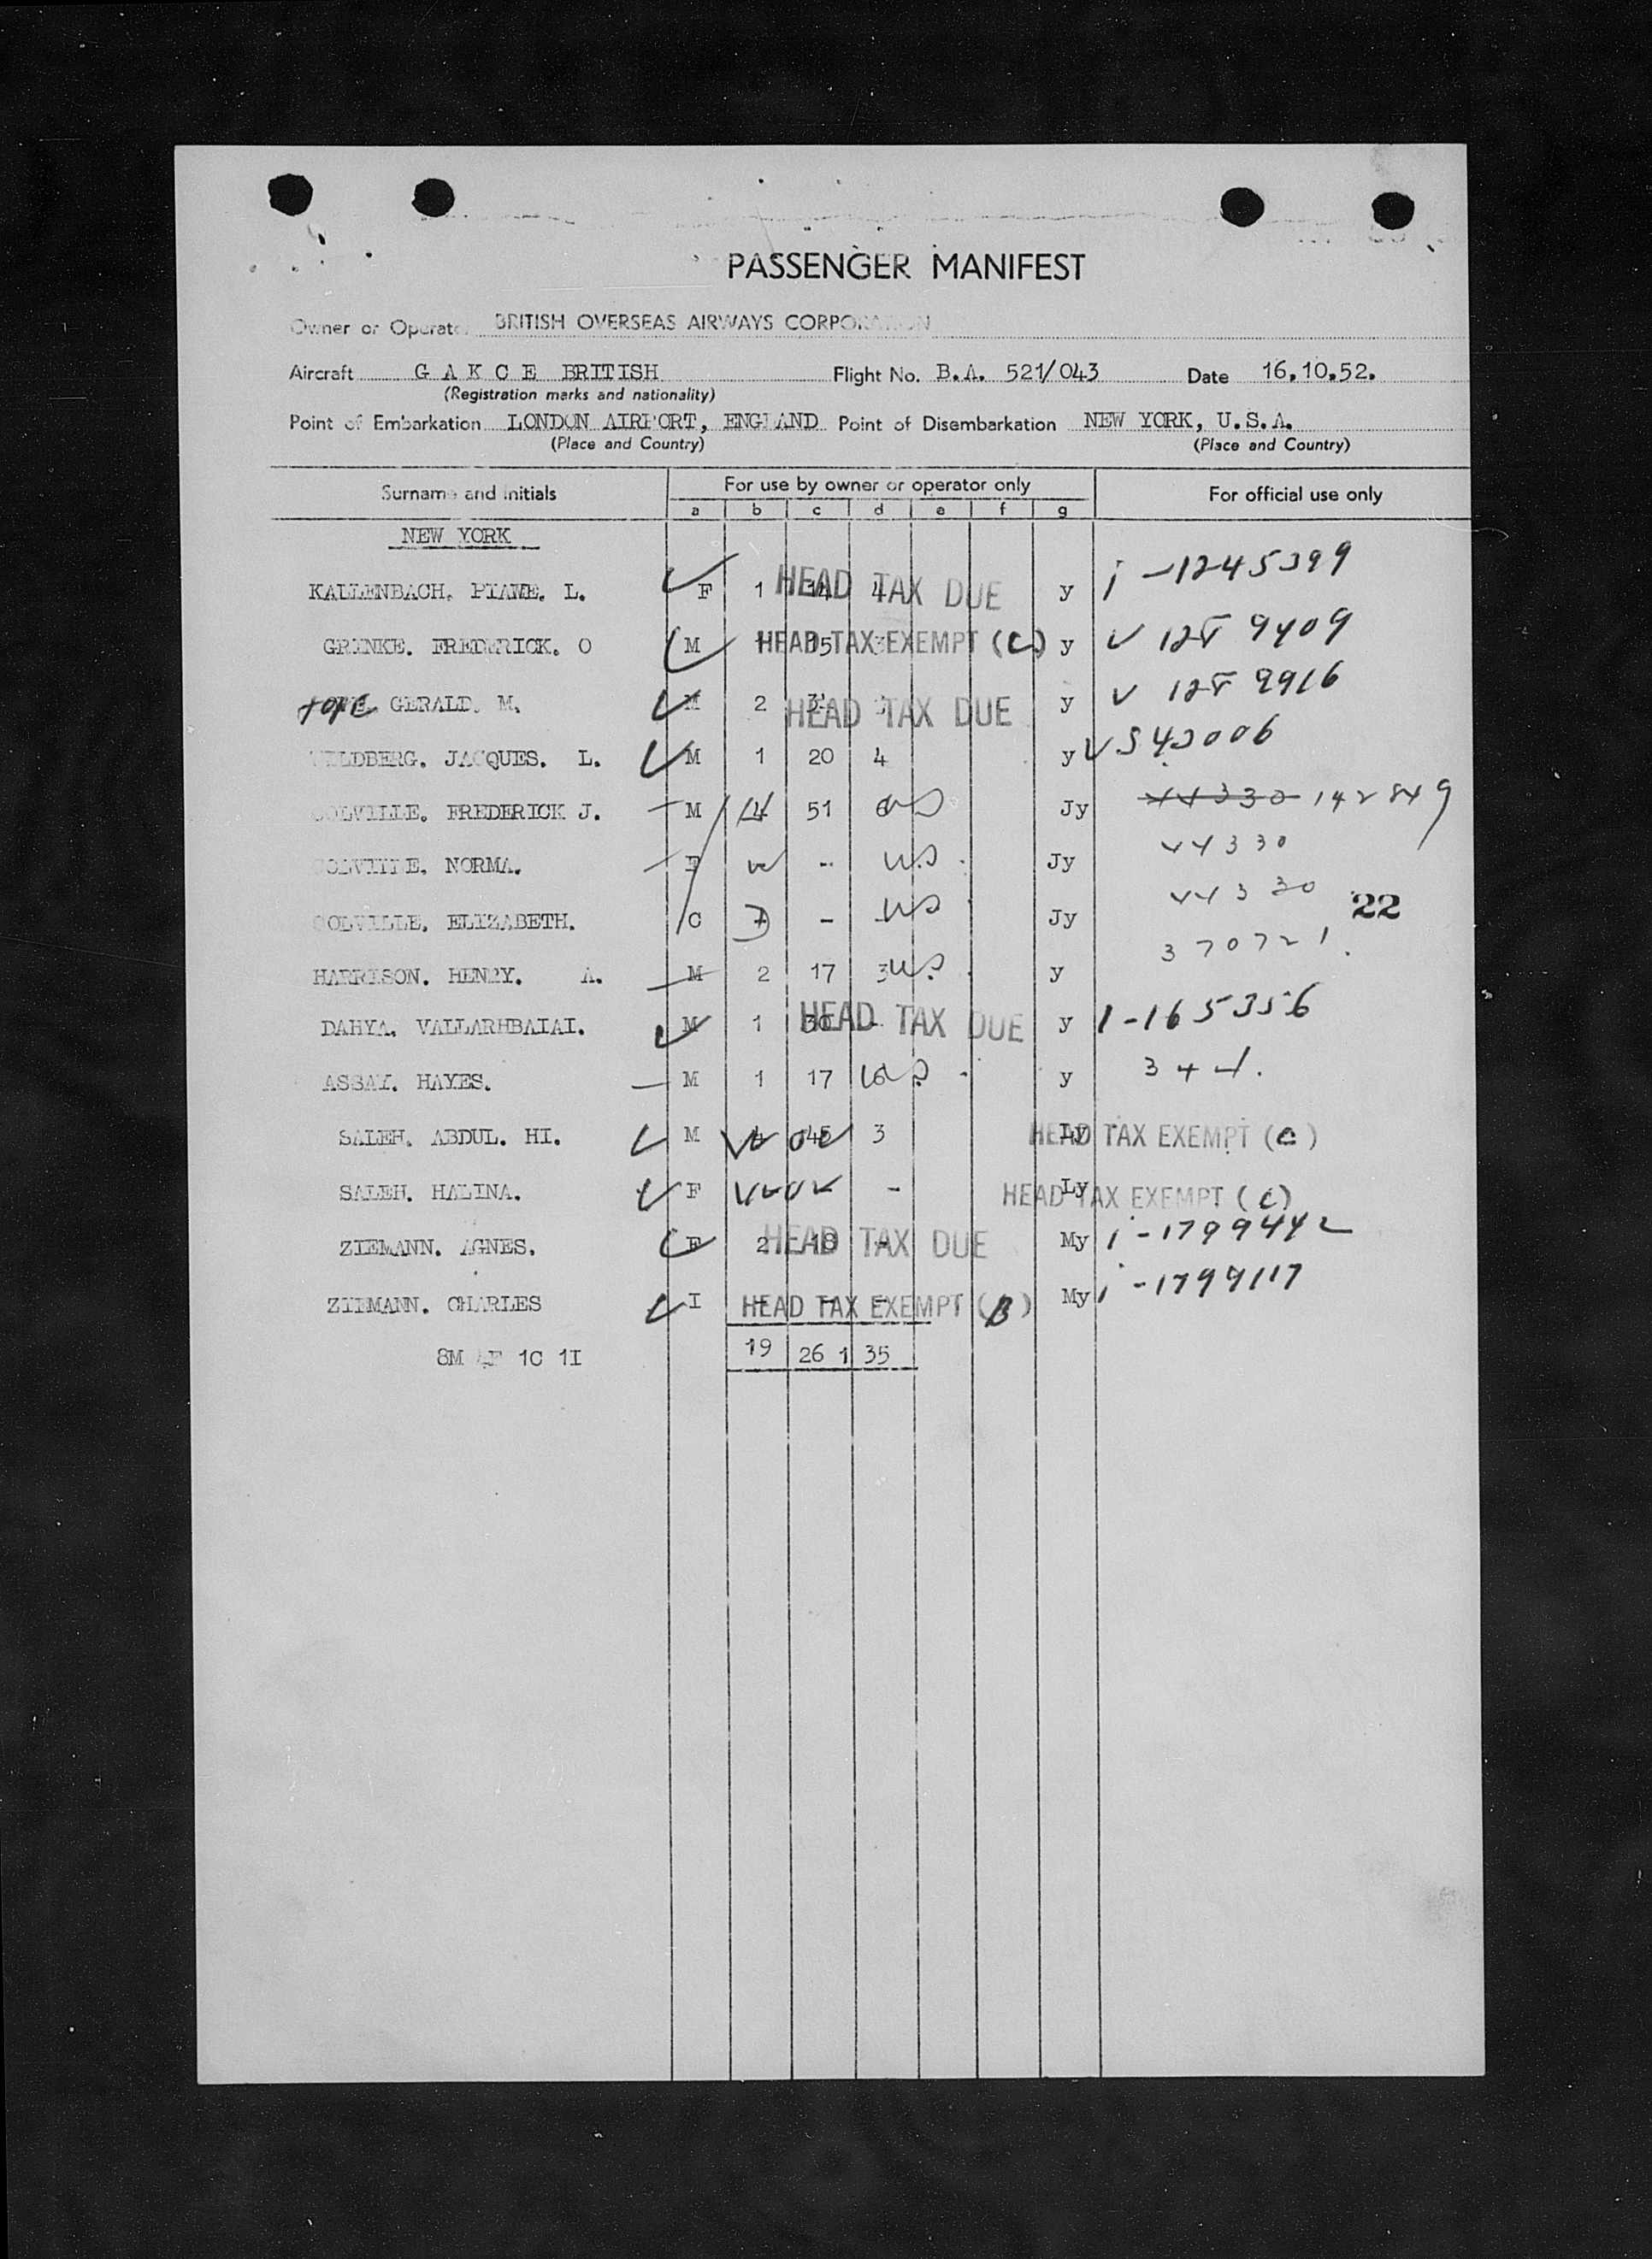 PASSENGER MANIFEST
Owner or Operator BRITISH OVERSEAS AIRWAYS CORPORATION
Aircraft G A K C E BRITISH Flight No. B.A. 521/043 Date 16.10.52.
(Registration marks and nationality)
Point of Embarkation LONDON AIRPORT, ENGLAND Point of Disembarkation NEW YORK, U.S.A.
(Place and Country) (Place and Country)
Surname and Initials For use by owner or operator only For official use only
a b c d e f g
NEW YORK
KALLENBACH. L. F 1 14 4 HEAD TAX DUE y i-1245399
GRINKE. FREDERICK. O M 15 HEAD TAX EXEMPT (C) y V 9409
GERALD. M. M 2 HEAD TAX DUE y V 9916
JACQUES. L. M 1 20 4 y V 543006
COLVILLE. FREDERICK J. M 4 51 Jy 44330 142849
COLVILLE. NORMA. F - US Jy 44330
COLVILLE. ELIZABETH. C - US Jy 44330 22
HARRISON. HENRY. A. M 2 17 3 US y 370721
DAHYA. VALLARHBAIAI. M 1 30 - HEAD TAX DUE y 1-165356
ASSAY. HAYES. M 1 17 y
SALEH. ABDUL. HI. M 4 45 3 Ly HEAD TAX EXEMPT (C)
SALEH. HALINA. F - Ly HEAD TAX EXEMPT (C)
ZIEMANN. AGNES. F 2 18 - HEAD TAX DUE My i-1799442
ZIEMANN. CHARLES I - - - HEAD TAX EXEMPT (B) My i-1799117
8M 4F 1C 1I 19 261 35